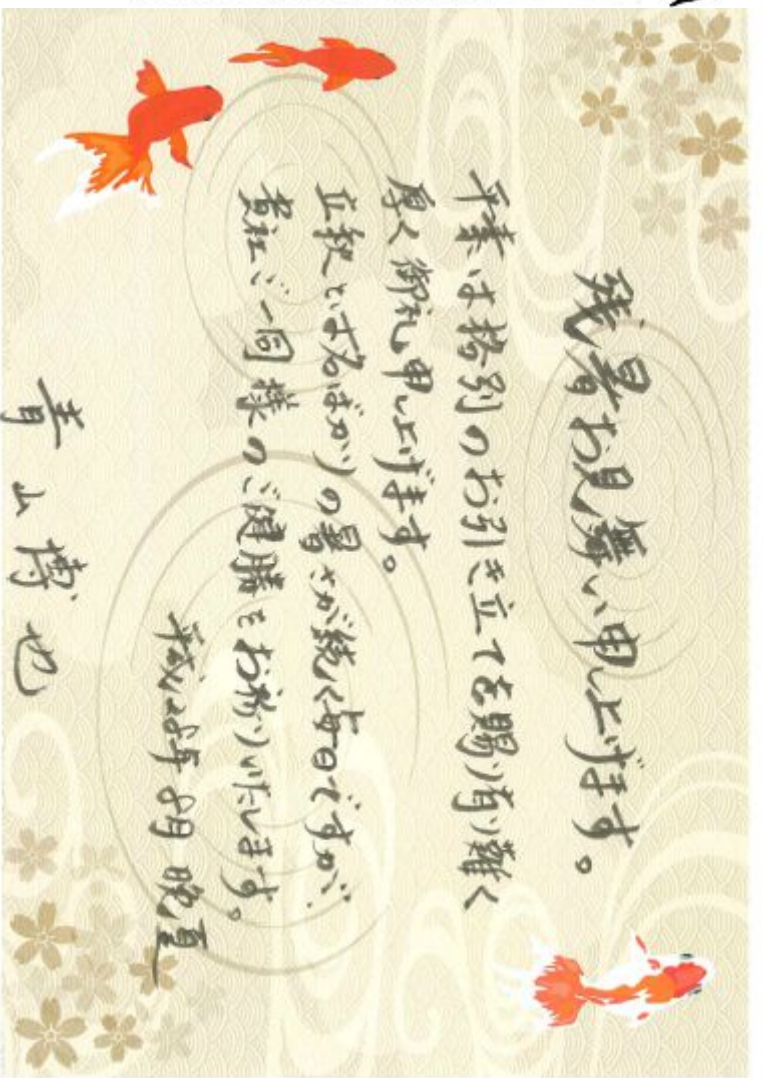 残暑お見舞い申し上げます。
平素は格別のお引き立てを賜り有り難く
厚く御礼申し上げます。
立秋とは名ばかりの暑さが続く毎日ですが、
貴社ご一同様のご健勝をお祈りいたします。
平成28年8月 晩夏
青山博也